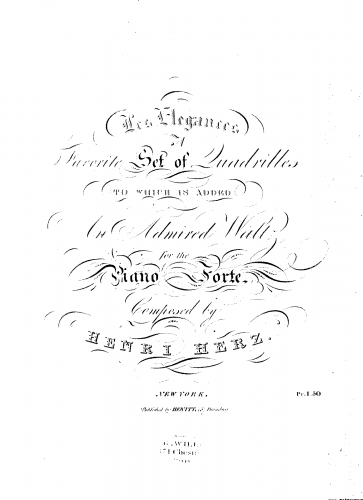 Les Elegances
A
Favorite Set of Quadrilles
TO WHICH IS ADDED
An Admired Waltz
for the
Piano Forte.
Composed by
HENRI HERZ.
NEW YORK,
Pr. 1.50
Published by HEWITT, Broadway
G. WILL
171 Ches